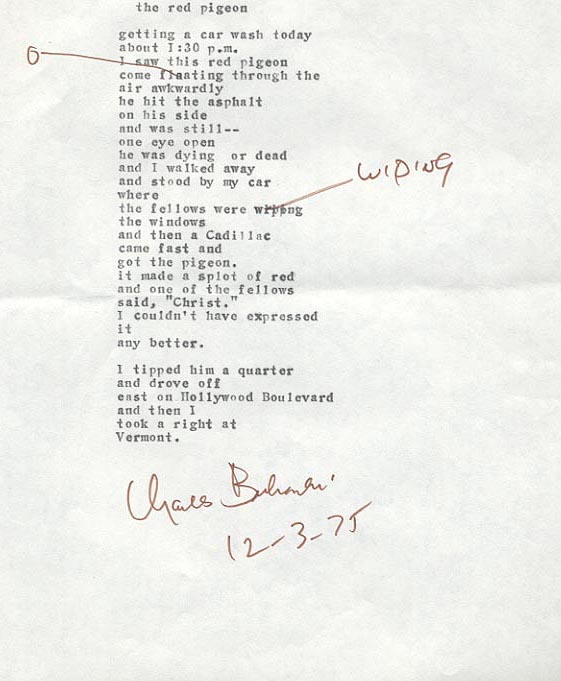 the red pigeon
getting a car wash today
about 1:30 p.m.
O
I saw this red pigeon
come flaating through the
air awkwardly
he hit the asphalt
on his side
and was still--
one eye open
he was dying or dead
and I walked away
WIPING
and stood by my car
where
the fellows were wppng
the windows
and then a Cadillac
came fast and
got the pigeon.
it made a splot of red
and one of the fellows
said, "Christ."
I couldn't have expressed
it
any better.
I tipped him a quarter
and drove off
east on Hollywood Boulevard
and then I
took a right at
Vermont.
Charles Bukowski
12-3-75